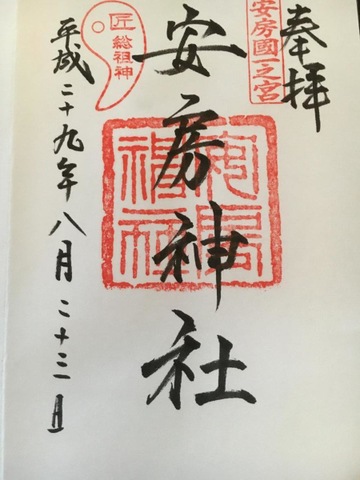 奉拝
安房國一之宮
安房神社
安房神社
匠総祖神
平成二十九年八月二十三日